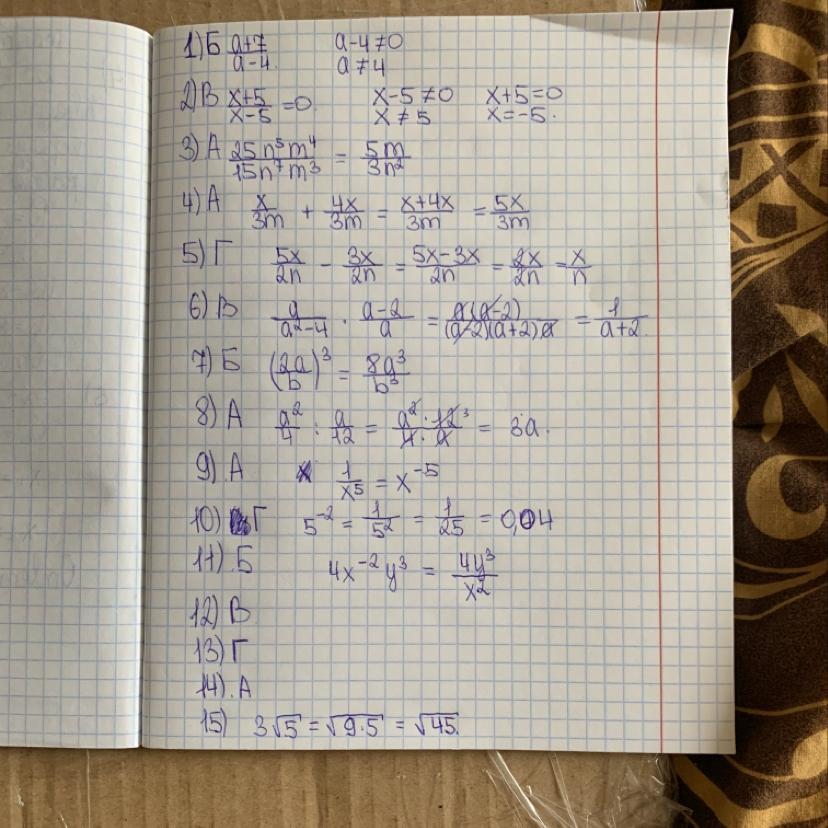 1) Б (a+7)/(a-4)   a-4≠0
a≠4
2) В (x+5)/(x-5) =0.   x-5≠0   x+5=0
x≠5   x=-5.
3) А (25n⁵m⁴)/(15n⁷m³) = 5m/3n²
4) А x/3m + 4x/3m = (x+4x)/3m = 5x/3m
5) Г 5x/2n - 3x/2n = (5x-3x)/2n = 2x/2n = x/n
6) В a/(a²-4) · (a-2)/a = (a(a-2))/((a-2)(a+2)a) = 1/(a+2).
7) Б (2a/b)³ = 8a³/b³
8) А a²/4 : a/12 = (a²·12 ³)/(4·a) = 3a.
9). А 1/x⁵ = x⁻⁵
10) Г 5⁻² = 1/5² = 1/25 = 0,04
11). Б 4x⁻²y³ = 4y³/x²
12) В
13) Г
14). А
15) 3√5 = √9·5 = √45.